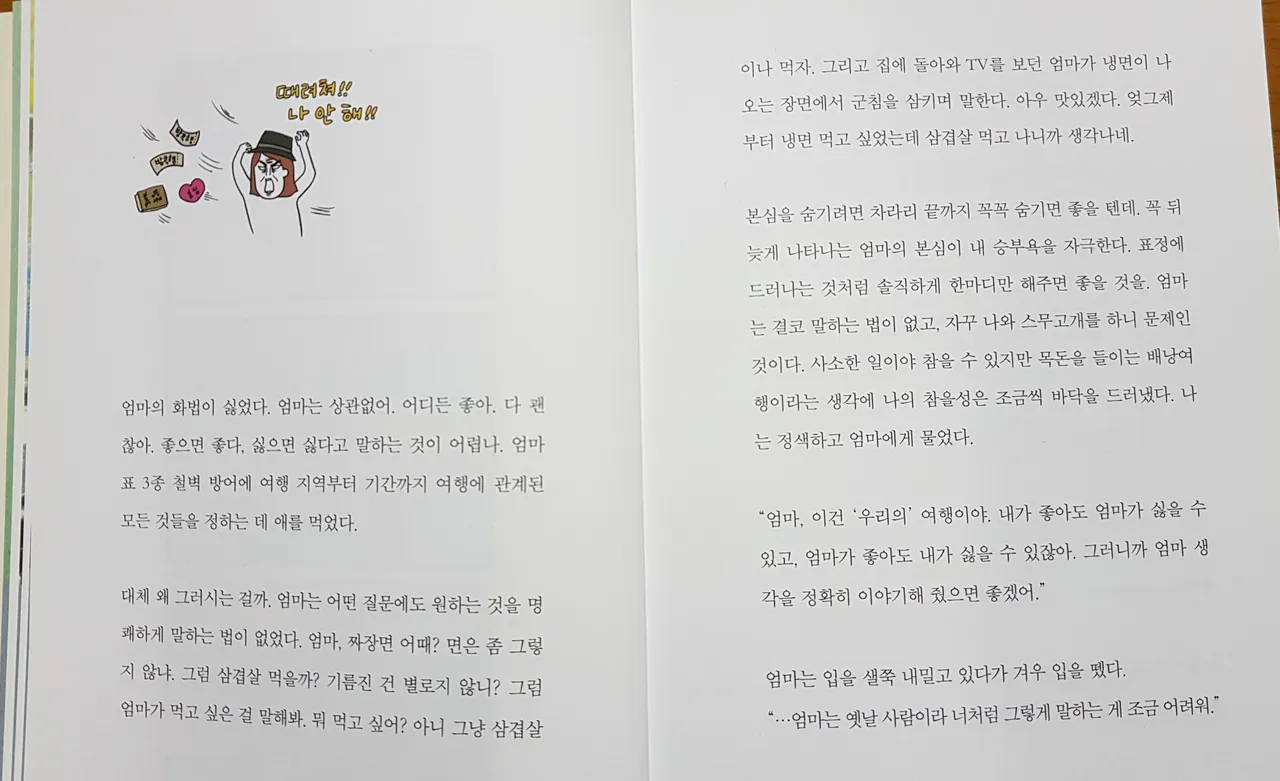 때려쳐!!
나 안 해!!
엄마의 화법이 싫었다. 엄마는 상관없어. 어디든 좋아. 다 괜
찮아. 좋으면 좋다, 싫으면 싫다고 말하는 것이 어렵나. 엄마
표 3종 철벽 방어에 여행 지역부터 기간까지 여행에 관계된
모든 것들을 정하는 데 애를 먹었다.
대체 왜 그러시는 걸까. 엄마는 어떤 질문에도 원하는 것을 명
쾌하게 말하는 법이 없었다. 엄마, 짜장면 어때? 면은 좀 그렇
지 않냐. 그럼 삼겹살 먹을까? 기름진 건 별로지 않니? 그럼
엄마가 먹고 싶은 걸 말해봐. 뭐 먹고 싶어? 아니 그냥 삼겹살
이나 먹자. 그리고 집에 돌아와 TV를 보던 엄마가 냉면이 나
오는 장면에서 군침을 삼키며 말한다. 아우 맛있겠다. 엊그제
부터 냉면 먹고 싶었는데 삼겹살 먹고 나니까 생각나네.
본심을 숨기려면 차라리 끝까지 꼭꼭 숨기면 좋을 텐데. 꼭 뒤
늦게 나타나는 엄마의 본심이 내 승부욕을 자극한다. 표정에
드러나는 것처럼 솔직하게 한마디만 해주면 좋을 것을. 엄마
는 결코 말하는 법이 없고, 자꾸 나와 스무고개를 하니 문제인
것이다. 사소한 일이야 참을 수 있지만 목돈을 들이는 배낭여
행이라는 생각에 나의 참을성은 조금씩 바닥을 드러냈다. 나
는 정색하고 엄마에게 물었다.
“엄마, 이건 ‘우리의’ 여행이야. 내가 좋아도 엄마가 싫을 수
있고, 엄마가 좋아도 내가 싫을 수 있잖아. 그러니까 엄마 생
각을 정확히 이야기해 줬으면 좋겠어.”
엄마는 입을 샐쭉 내밀고 있다가 겨우 입을 뗐다.
“…엄마는 옛날 사람이라 너처럼 그렇게 말하는 게 조금 어려워.”